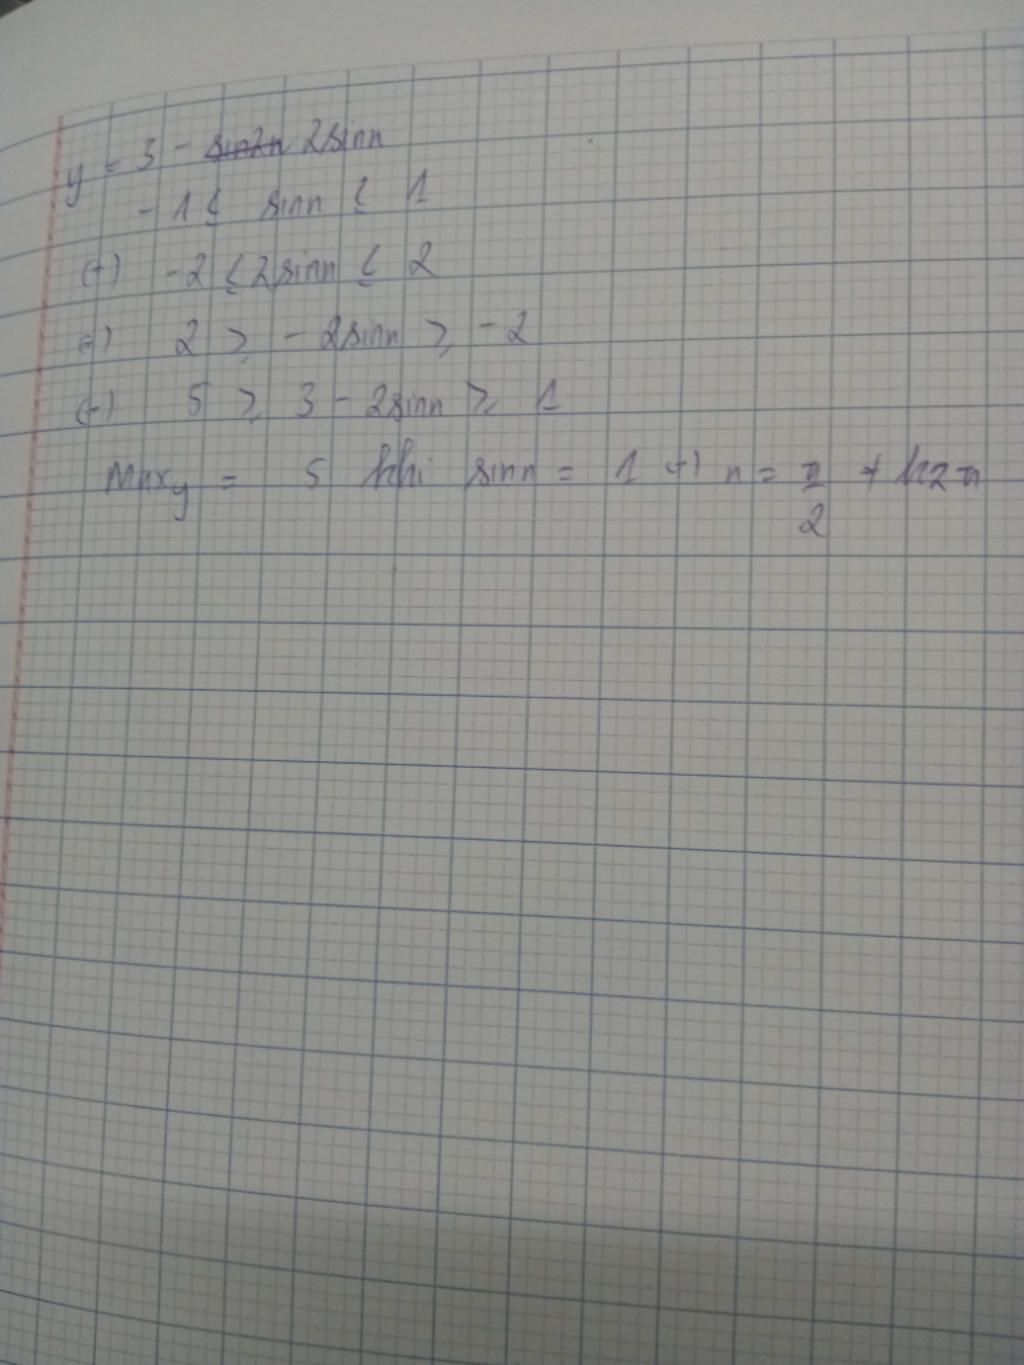 y = 3 - 2sinx
-1 ≤ sinx ≤ 1
(+) -2 ≤ 2sinx ≤ 2
(+) 2 ≥ -2sinx ≥ -2
(+) 5 ≥ 3 - 2sinx ≥ 1
Maxy = 5 khi sinx = 1 (+) x = π/2 + k2π